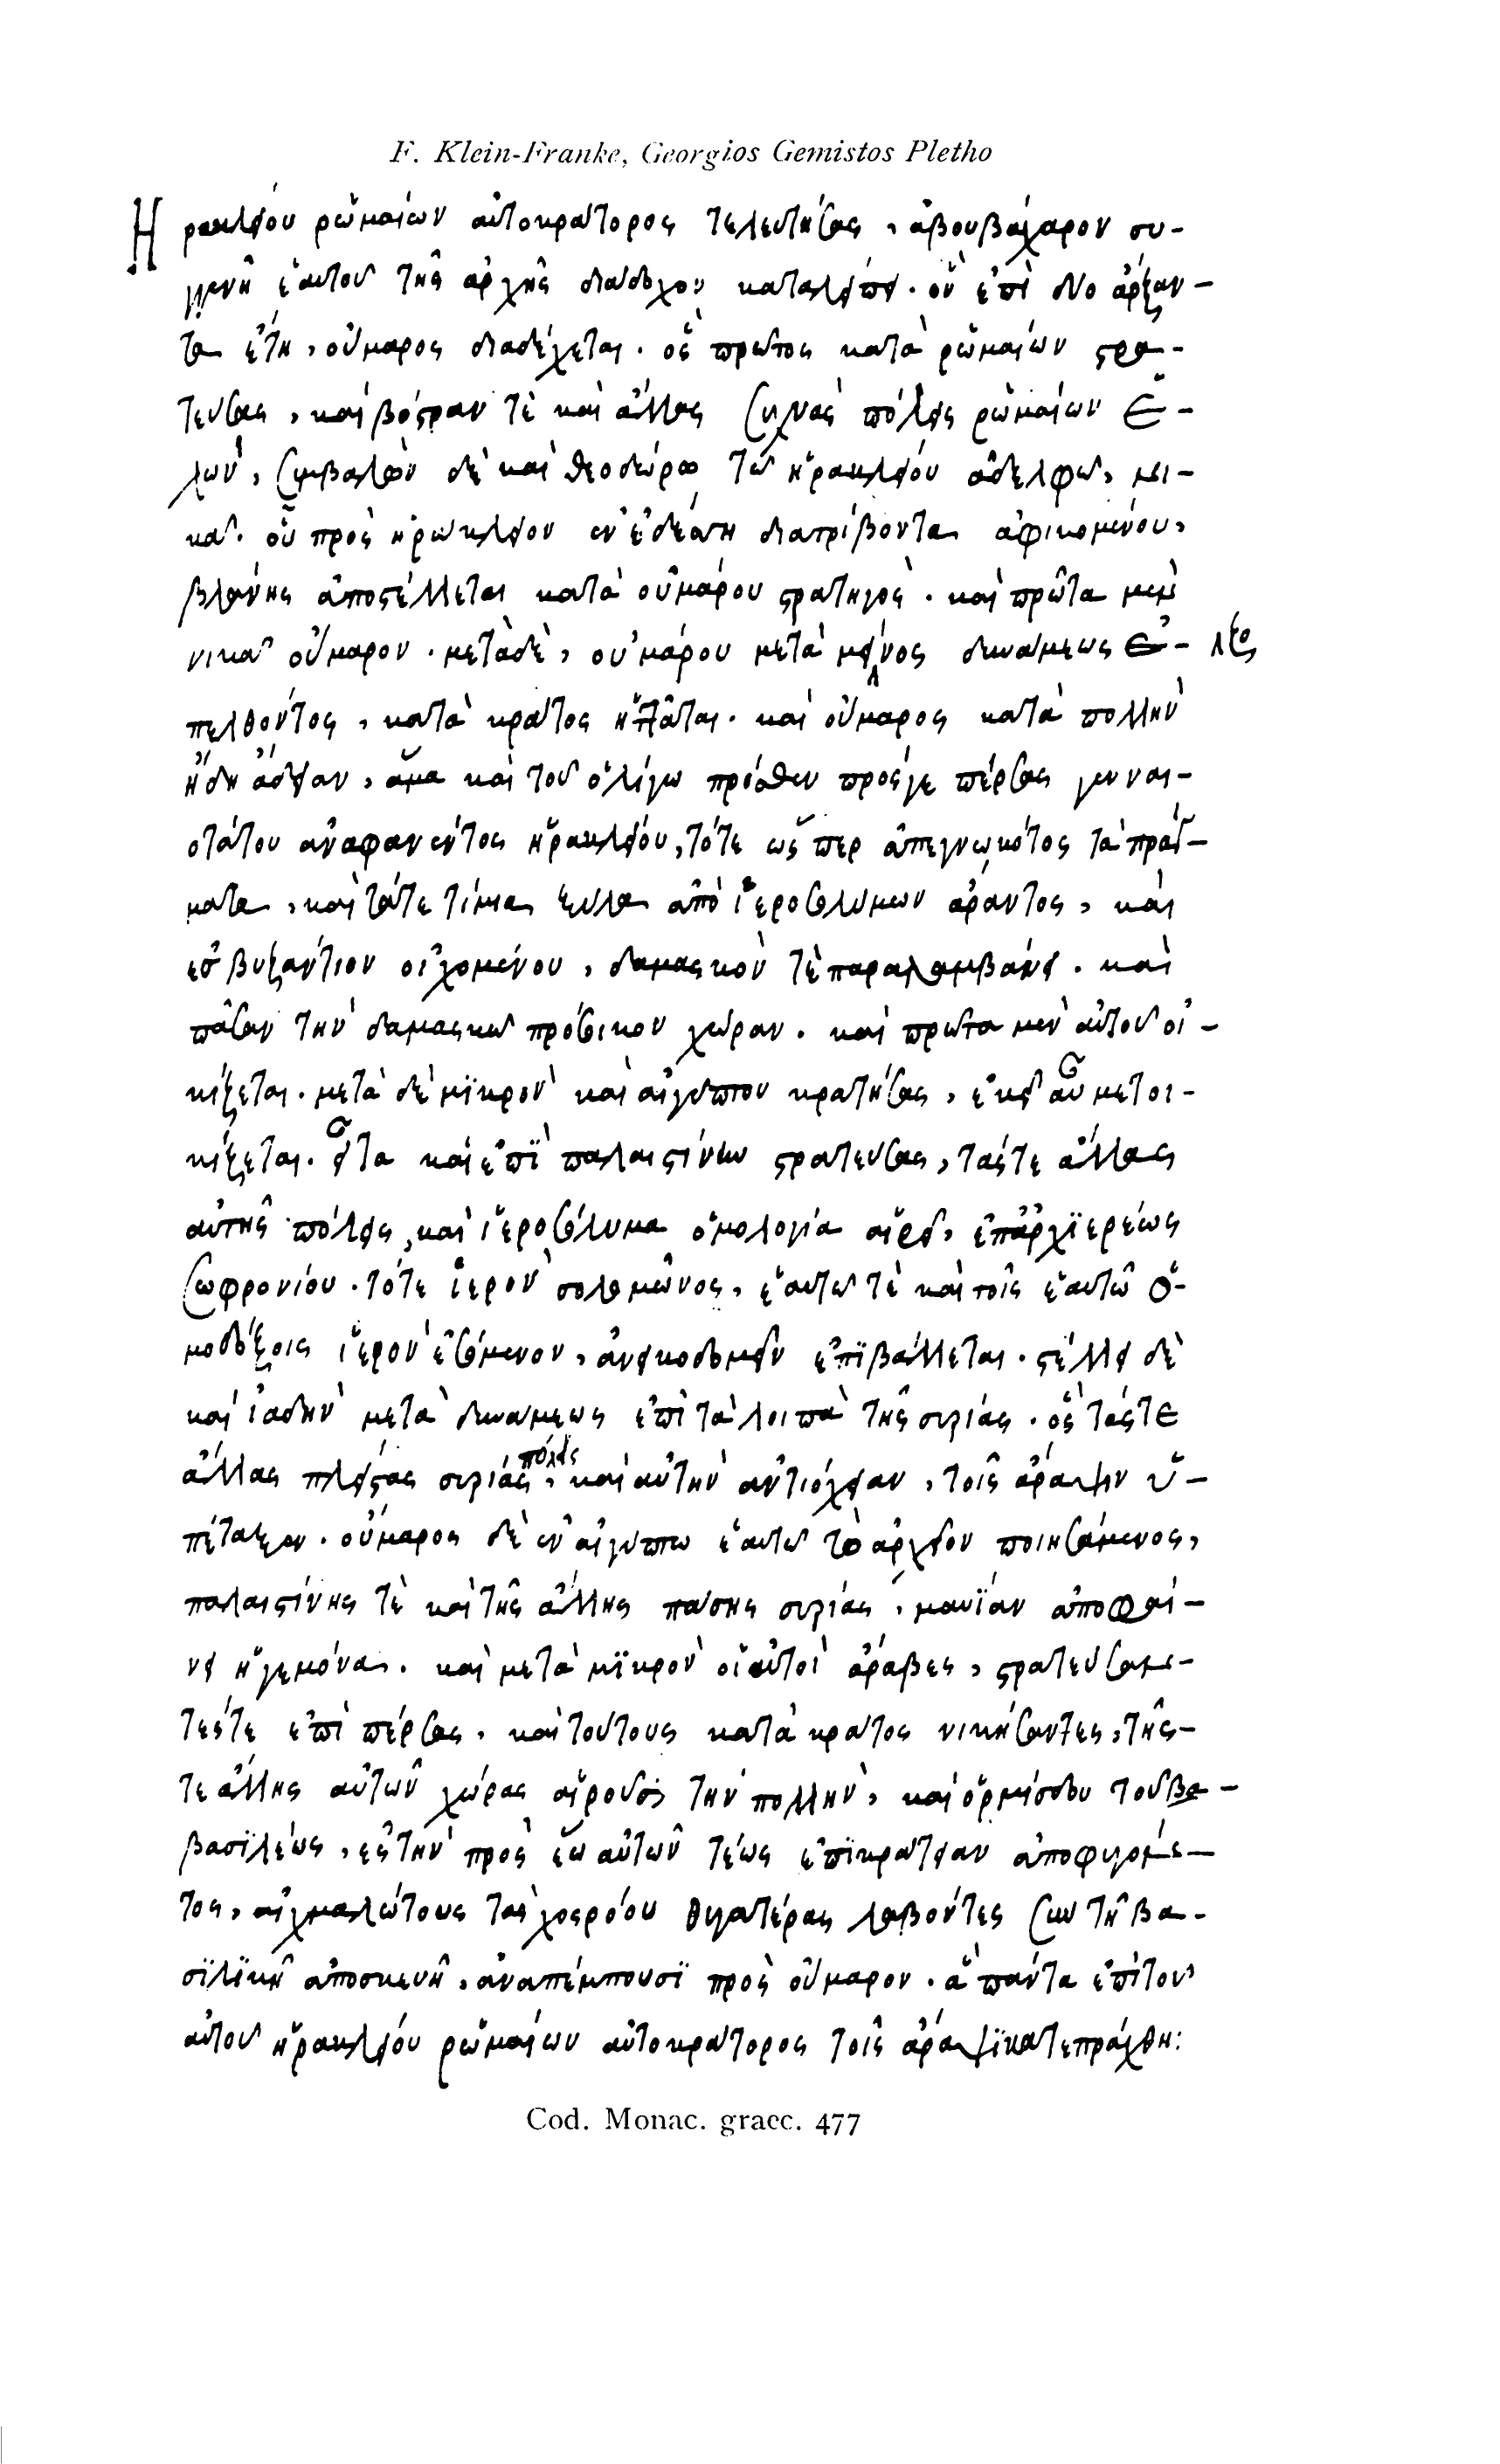 F. Klein-Franke, Georgios Gemistos Pletho
Ἡρακλείου ρωμαίων αὐτοκράτορος τελευτήσας, ἀβουβάχαρον συ-
γγενῆ ἑαυτοῦ τῆς ἀρχῆς διάδοχον καταλείπει. οὗ ἐπὶ δύο ἄρξαν-
τα ἔτη, οὔμαρος διαδέχεται. ὃς πρῶτος κατὰ ρωμαίων στρα-
τεύσας, καὶ βόστραν τὲ καὶ ἄλλας συχνὰς πόλεις ρωμαίων ἑ-
λὼν, συμβαλὼν δὲ καὶ θεοδώρῳ τῷ ἡρακλείου ἀδελφῷ, νι-
κᾶ. οὗ πρὸς ἡράκλειον ἐν ἐδέσῃ διατρίβοντα ἀφικομένου,
βλάνης ἀποστέλλεται κατὰ οὐμάρου στρατηγὸς. καὶ πρῶτα μὲν
νικᾶ οὔμαρον. μετὰ δὲ, οὐμάρου μετὰ μείζονος δυνάμεως ἐ-
πελθόντος, κατὰ κράτος ἡττᾶται. καὶ οὔμαρος κατὰ πολλὴν
ἤδη ἄδειαν, ἅμα καὶ τοῦ ὀλίγω πρόσθεν πρός γε πέρσας γενναι-
οτάτου ἀναφανέντος ἡρακλείου, τότε ὥσπερ ἀπεγνωκότος τὰ πράγ-
ματα, καὶ τά τε τίμια ξύλα ἀπὸ ἱεροσολύμων ἄραντος, καὶ
ἐς βυζάντιον οἰχομένου, δαμασκὸν τὲ παραλαμβάνει. καὶ
πᾶσαν τὴν δαμασκῷ πρόσοικον χώραν. καὶ πρῶτα μὲν αὐτοῦ οἰ-
κίζεται. μετὰ δὲ μϊκρὸν καὶ αἰγύπτου κρατήσας, ἐκεῖ αὖ μετοι-
κίζεται. εἶτα καὶ ἐπὶ παλαιστίνων στρατεύσας, τάς τε ἄλλας
αὐτῆς πόλεις, καὶ ἱεροσόλυμα ὁμολογία αἱρεῖ, ἐπ ἀρχϊερέως
σωφρονίου. τότε ἱερὸν σολομῶνος, ἑαυτῷ τὲ καὶ τοῖς ἑαυτῷ ὁ-
μοδόξοις ἱερὸν ἐσόμενον, ἀνοικοδομεῖν ἐπϊβάλλεται. στέλλει δὲ
καὶ ἰαδὴν μετὰ δυνάμεως ἐπὶ τὰ λοιπὰ τῆς συρίας. ὃς τάς τε
ἄλλας πλείστας συρίας πόλεις, καὶ αὐτὴν ἀντιόχειαν, τοῖς ἄραψιν ὑ-
πέταξεν. οὔμαρος δὲ ἐν αἰγύπτω ἑαυτῷ τὸ ἀρχεῖον ποιησάμενος,
παλαιστίνης τὲ καὶ τῆς ἄλλης πάσης συρίας, μαυΐαν ἀποφαί-
νει ἡγεμόνα. καὶ μετὰ μϊκρὸν οἱ αὐτοὶ ἄραβες, στρατευσαμε-
τές τε ἐπὶ πέρσας, καὶ τούτους κατὰ κράτος νικήσαντες, τῆς-
τε ἄλλης αὐτῶν χώρας αἱροῦσι τὴν πολλὴν, καὶ ὁρμίσδου τοῦ βα-
βασϊλέως, ἐς τὴν πρὸς ἕω αὐτῶν τέως ἐπϊκράτειαν ἀποφυγομέ-
τος, αἰχμαλώτους τὰς χοσρόου θυγατέρας λαβόντες σὺν τῇ βα-
σϊλϊκῇ ἀποσκευῇ, ἀναπέμπουσϊ πρὸς οὔμαρον. ἃ πάντα ἐπὶ τοῦ
αὐτοῦ ἡρακλείου ρωμαίων αὐτοκράτορος τοῖς ἄραψϊ κατεπράχθη:
Cod. Monac. graec. 477